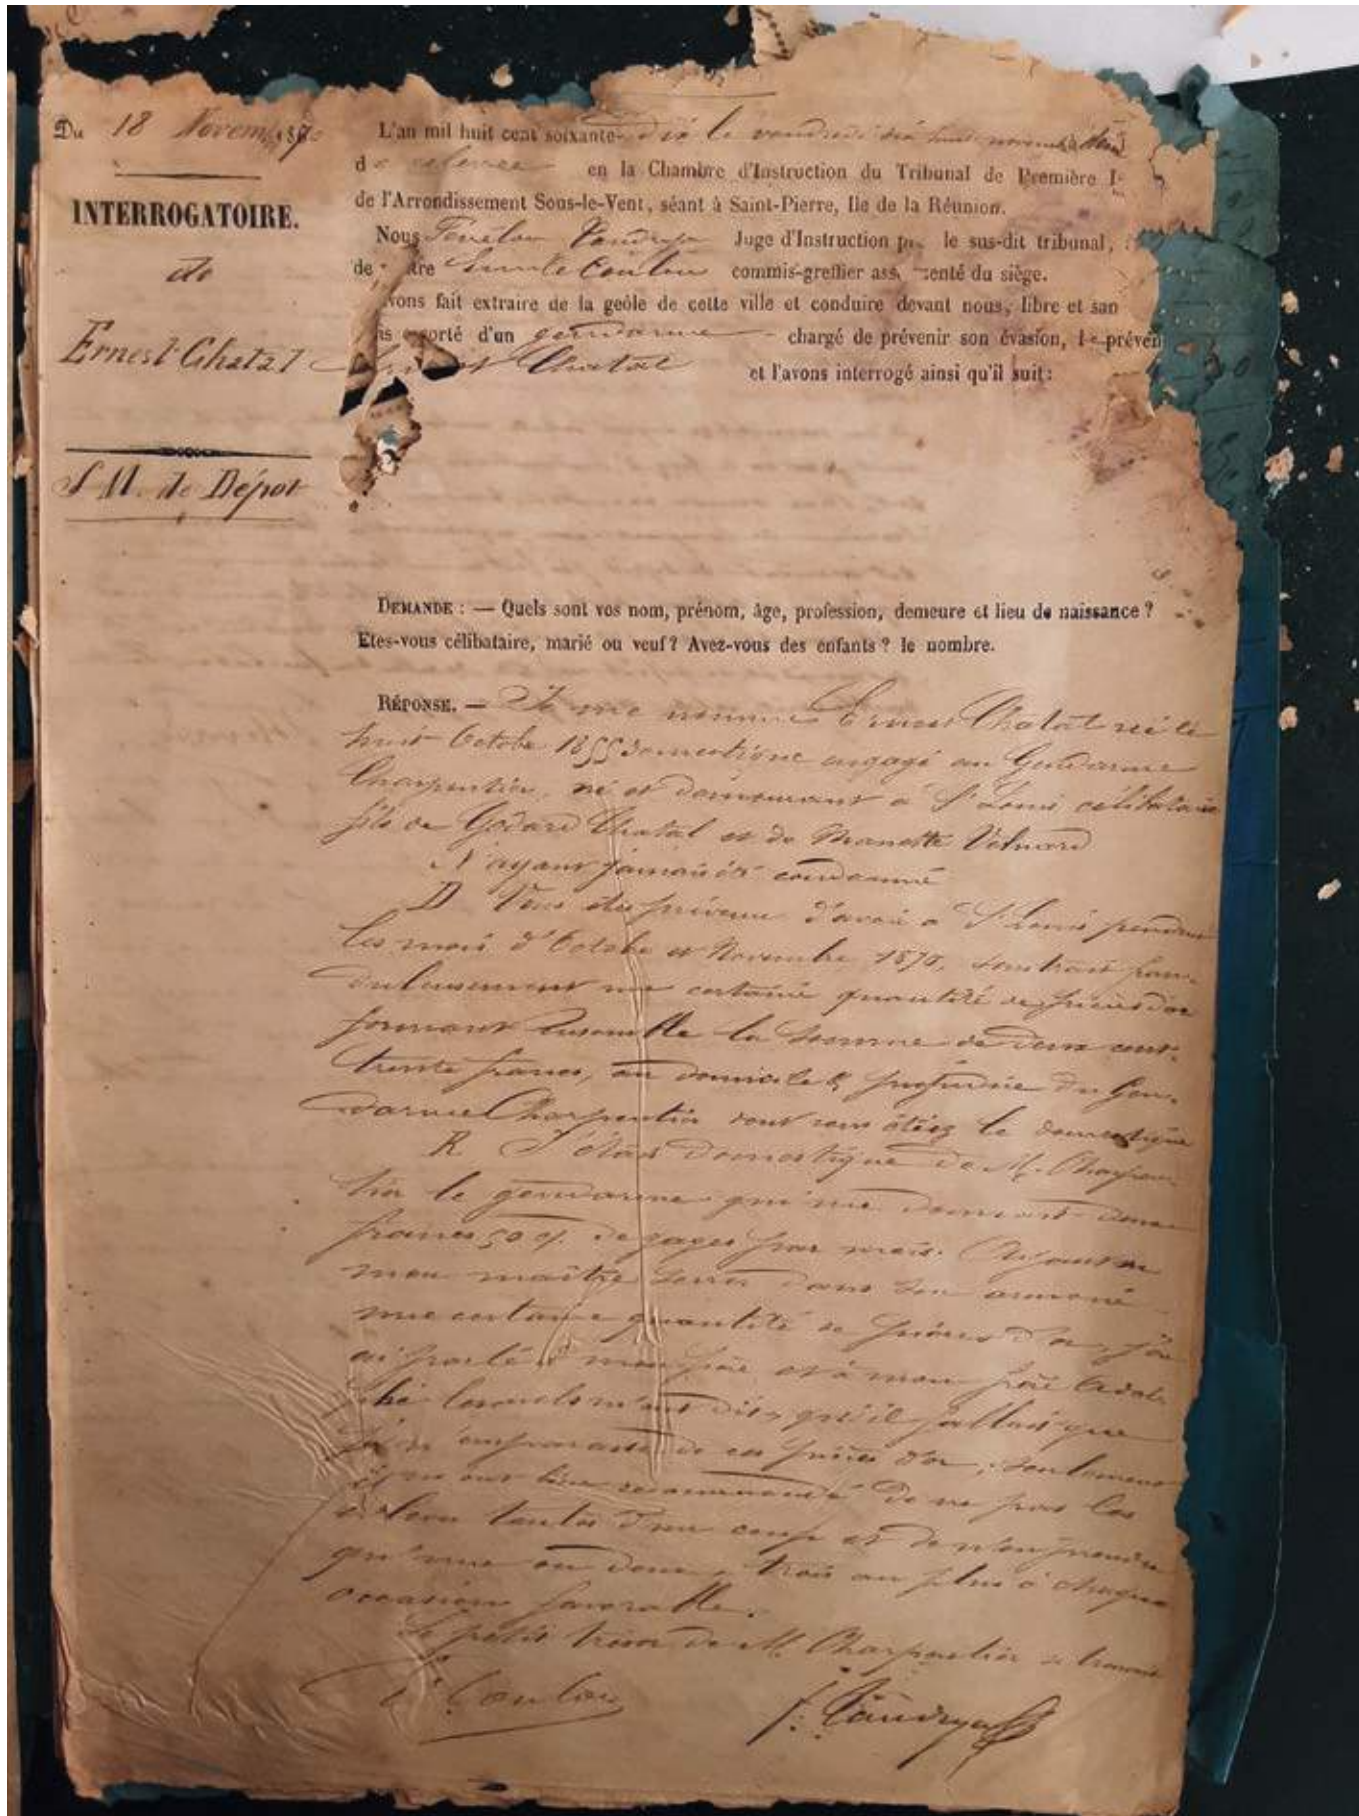 Du 18 Novem 187
L'an mil huit cent soixante-dix le vendredi dix huit novembre
d en la Chambre d'Instruction du Tribunal de Première I
INTERROGATOIRE.
de l'Arrondissement Sous-le-Vent, séant à Saint-Pierre, Ile de la Réunion.
Nous Juge d'Instruction p le sus-dit tribunal,
de
de tre commis-greffier ass enté du siège.
vons fait extraire de la geôle de cette ville et conduire devant nous, libre et san
Ernest Chatal
s orté d'un gendarme chargé de prévenir son évasion, le préven
Chatal et l'avons interrogé ainsi qu'il suit:
S M. de Dépot
DEMANDE : — Quels sont vos nom, prénom, âge, profession, demeure et lieu de naissance ?
Etes-vous célibataire, marié ou veuf ? Avez-vous des enfants ? le nombre.
RÉPONSE. — Je me nomme Ernest Chatal né le
huit Octobre 1855 domestique engagé au Gendarme
Charpentier, né et demeurant à St Louis célibataire
fils de Godard Chatal et de Manette
N'ayant jamais été condamné
D Vous êtes prévenu d'avoir à St Louis pendant
les mois d'Octobre et Novembre 1870, soustrait frau-
duleusement une certaine quantité de pièces d'or
formant ensemble la somme de deux cent
trente francs, au domicile & préjudice du Gen-
darme Charpentier dont vous étiez le domestique
R J'étais domestique de M. Charpen-
tier le gendarme qui me donnait douze
francs 50 c. de gages par mois. Ayant vu
mon maître serrer dans son armoire
une certaine quantité de pièces d'or, j'en
ai parlé à mon père et à mon frère
lesquels m'ont dit qu'il fallait que
je m'emparasse de ces pièces d'or, seulement
ils m'ont bien recommandé de ne pas les
toutes d'un coup et de n'en prendre
qu'une ou deux, trois au plus à chaque
occasion favorable.
Le petit trésor de M. Charpentier se trouvait